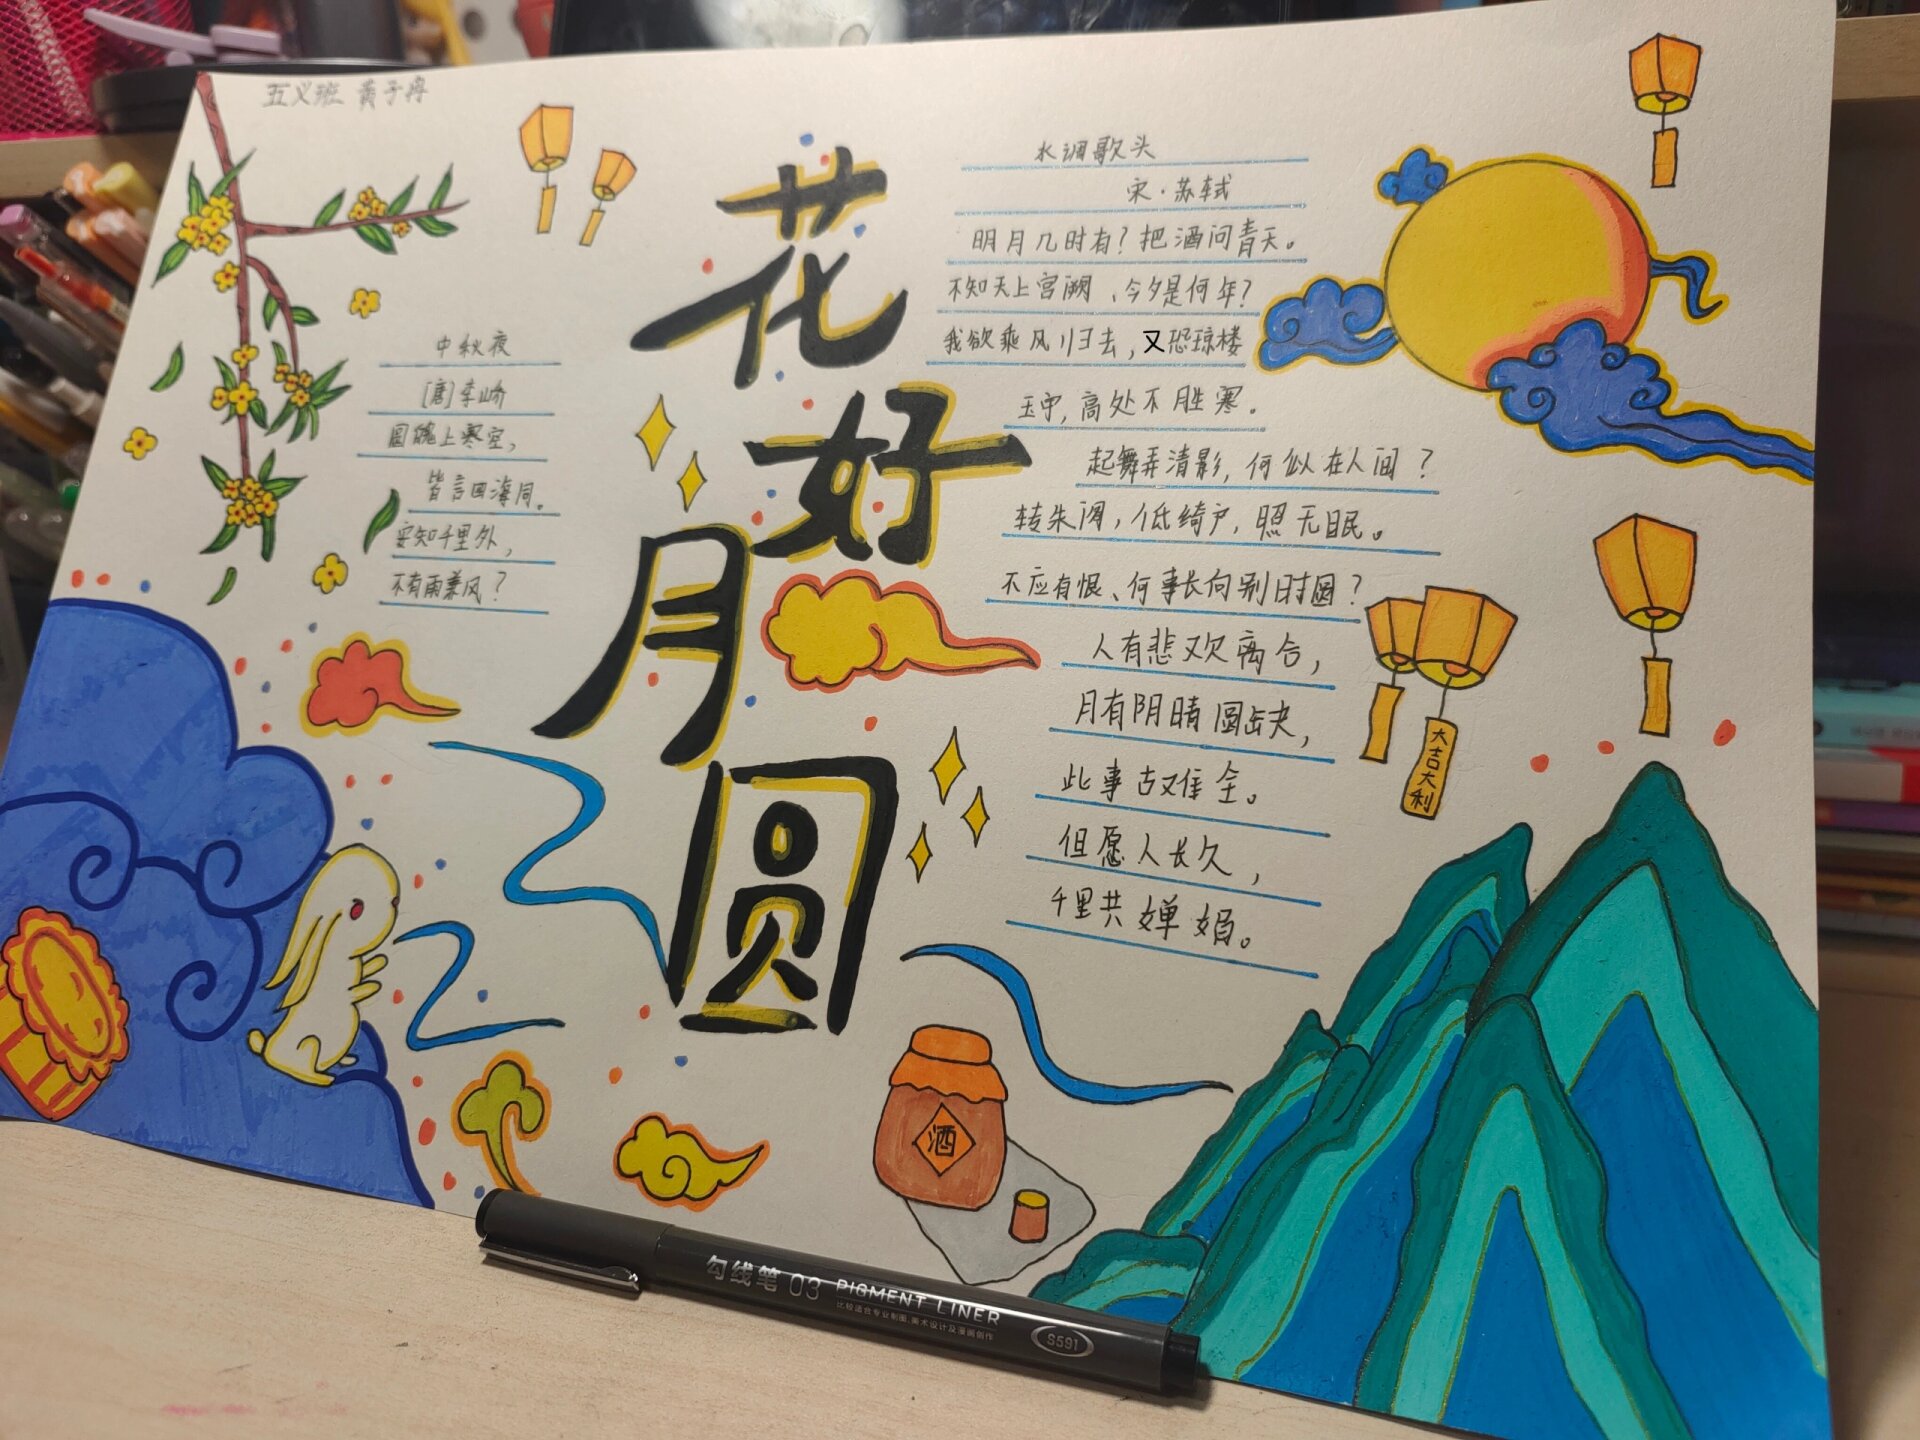 五义班 黄子冉
花好月圆
中秋夜
[唐]李峤
圆魄上寒空，
皆言四海同。
安知千里外，
不有雨兼风？
水调歌头
宋·苏轼
明月几时有？把酒问青天。
不知天上宫阙、今夕是何年？
我欲乘风归去，又恐琼楼
玉宇，高处不胜寒。
起舞弄清影，何似在人间？
转朱阁，低绮户，照无眠。
不应有恨、何事长向别时圆？
人有悲欢离合，
月有阴晴圆缺，
此事古难全。
但愿人长久，
千里共婵娟。
大吉大利
酒
勾线笔 03 PIGMENT LINER
比较适合专业制图、美术设计及漫画创作
S591